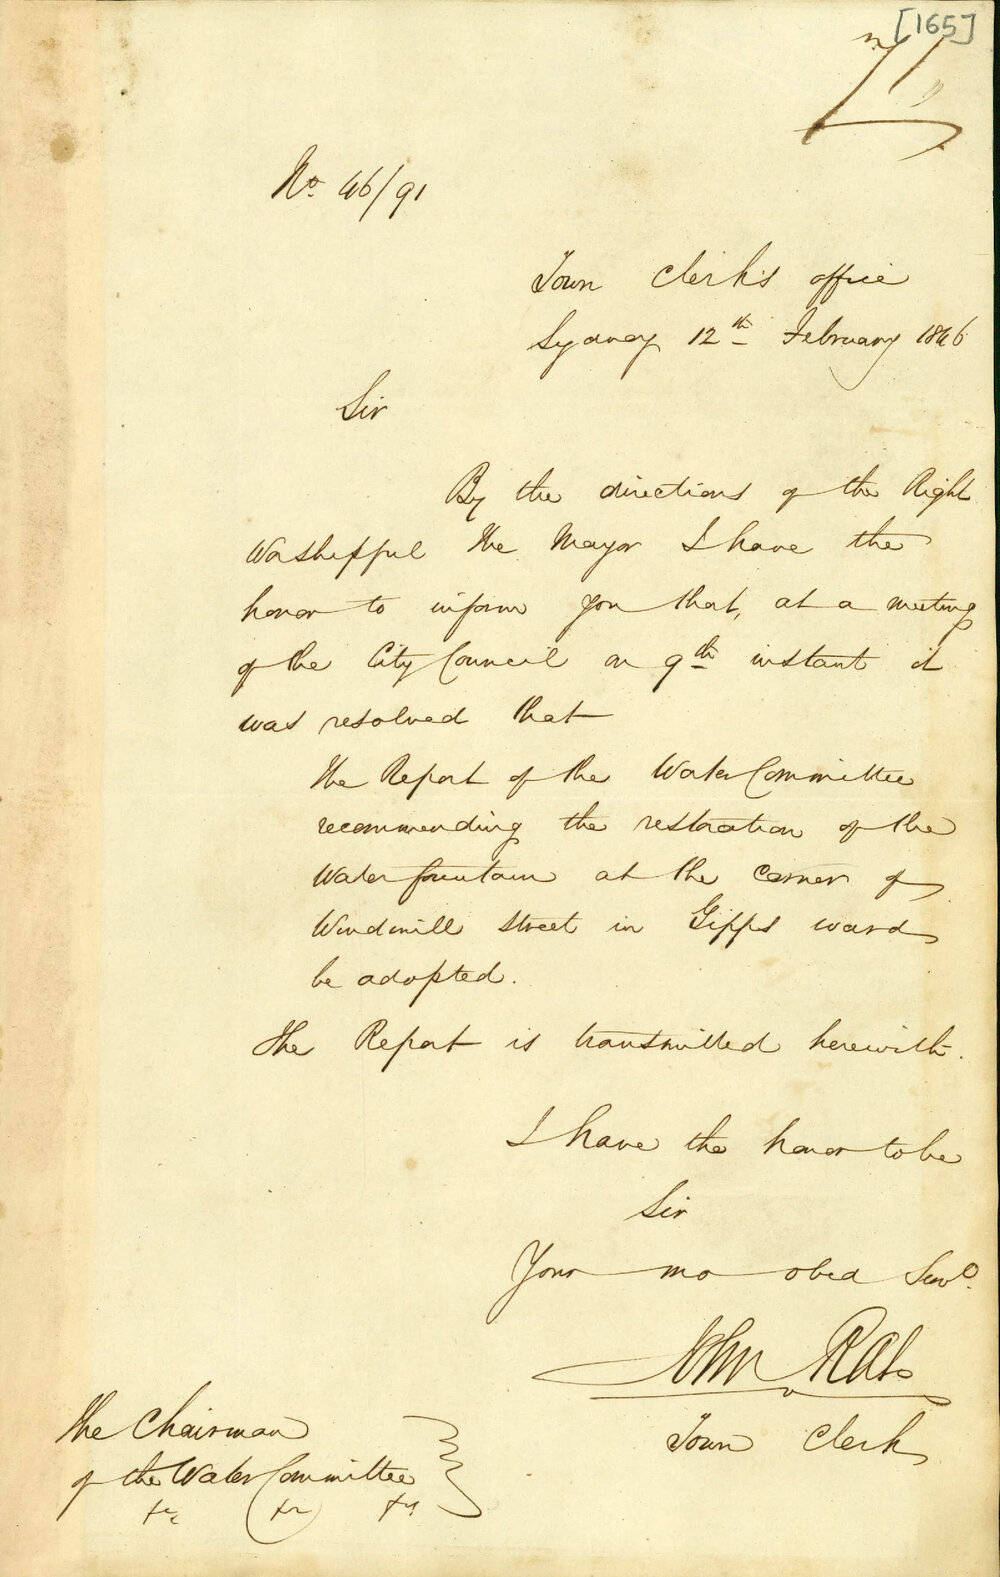 [165]
No. 46/91
Town Clerk's office
Sydney 12th February 1846
Sir
By the directions of the Right
Worshipful the Mayor I have the
honor to inform you that, at a meeting
of the City Council on 9th instant it
was resolved that
The Report of the Water Committee
recommending the restoration of the
Water fountain at the corner of
Windmill Street in Gipps ward
be adopted.
The Report is transmitted herewith.
I have the honor to be
Sir
Your mo obed Servt.
John Rae
Town Clerk
The Chairman
of the Water Committee
&c &c &c